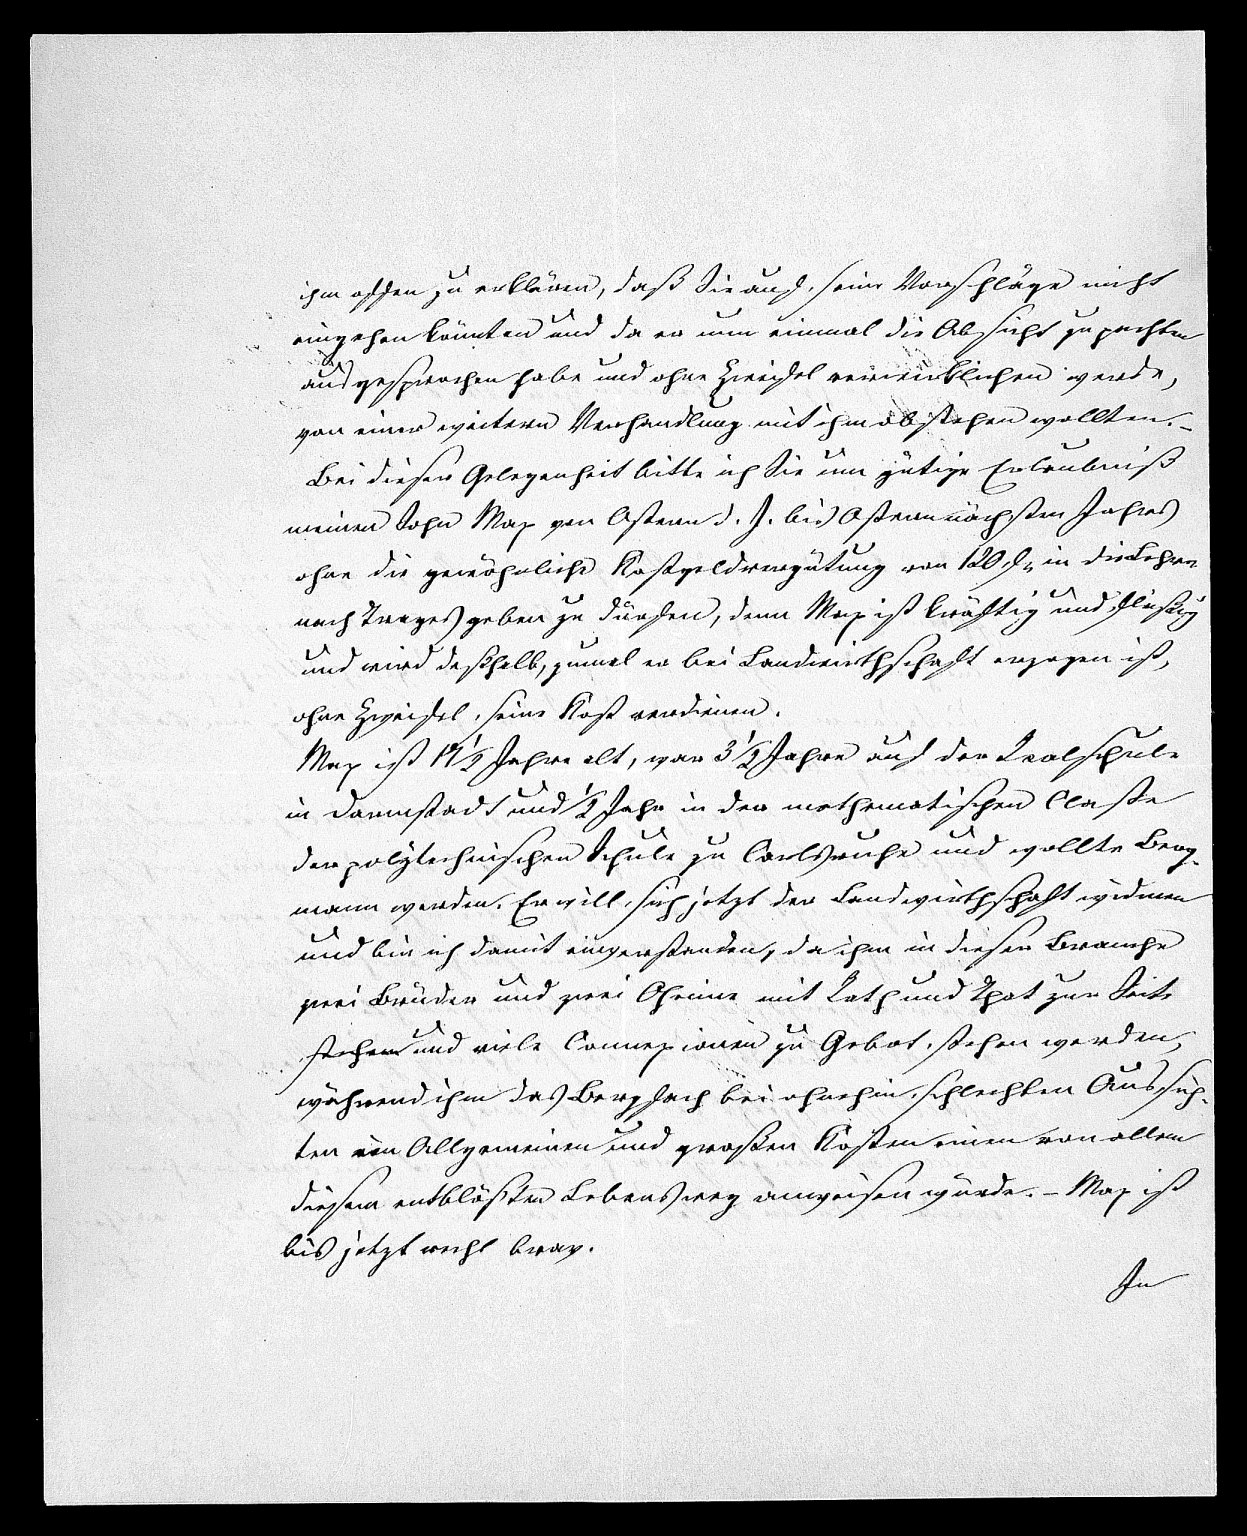 ihm offen zu erklären, daß Sie auf seine Vorschläge nicht
eingehen könnten und da er nun einmal die Absicht zu pachten
ausgesprochen habe und ohne Zweifel verwirklichen werde,
von einer weitern Verhandlung mit ihm abstehen wollten. –
Bei dieser Gelegenheit bitte ich Sie um gütige Erlaubniß
meinen Sohn Max von Ostern d. J. bis Ostern nächsten Jahres
ohne die gewöhnliche Kostgeldvergütung von 120 fl. in die Lehre
nach Trages geben zu dürfen, denn Max ist kräftig und fleißig
und wird deßhalb, zumal er bei Landwirthschaft erzogen ist,
ohne Zweifel seine Kost verdienen.
Max ist 17 1/2 Jahre alt, war 3 1/2 Jahre auf der Realschule
in Darmstadt und 1/2 Jahr in der mathematischen Classe
der polytechnischen Schule zu Carlsruhe und wollte Berg-
mann werden. Er will sich jetzt der Landwirthschaft widmen
und bin ich damit einverstanden, da ihm in dieser Branche
zwei Brüder und zwei Oheime mit Rath und That zur Seite
stehen und viele Connexionen zu Gebot stehen werden,
während ihm das Bergfach bei ohnehin schlechten Aussich-
ten im Allgemeinen und großen Kosten einen von allem
diesem entblößten Lebensweg anweisen würde. – Max ist
bis jetzt recht brav.
In